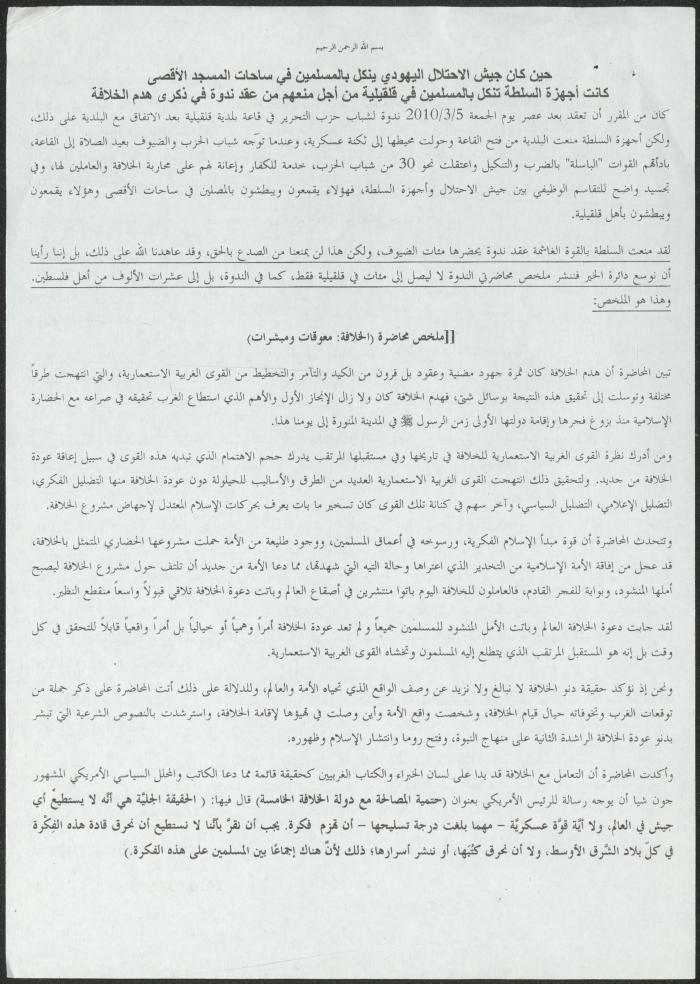 بسم الله الرحمن الرحيم
حين كان جيش الاحتلال اليهودي ينكل بالمسلمين في ساحات المسجد الأقصى
كانت أجهزة السلطة تنكل بالمسلمين في قلقيلية من أجل منعهم من عقد ندوة في ذكرى هدم الخلافة
كان من المقرر أن تعقد بعد عصر يوم الجمعة 2010/3/5 ندوة لشباب حزب التحرير في قاعة بلدية قلقيلية بعد الاتفاق مع البلدية على ذلك،
ولكن أجهزة السلطة منعت البلدية من فتح القاعة وحولت محيطها إلى ثكنة عسكرية، وعندما توجه شباب الحزب والضيوف بعيد الصلاة إلى القاعة،
بادأتهم القوات "الباسلة" بالضرب والتنكيل واعتقلت نحو 30 من شباب الحزب، خدمة للكفار وإعانة لهم على محاربة الخلافة والعاملين لها، وفي
تجسيد واضح للتقاسم الوظيفي بين جيش الاحتلال وأجهزة السلطة، فهؤلاء يقمعون ويبطشون بالمصلين في ساحات الأقصى وهؤلاء يقمعون
ويبطشون بأهل قلقيلية.
لقد منعت السلطة بالقوة الغاشمة عقد ندوة يحضرها مئات الضيوف، ولكن هذا لن يمنعنا من الصدع بالحق، وقد عاهدنا الله على ذلك، بل إننا رأينا
أن نوسع دائرة الخير فننشر ملخص محاضرتي الندوة لا ليصل إلى مئات في قلقيلية فقط، كما في الندوة، بل إلى عشرات الألوف من أهل فلسطين.
وهذا هو الملخص:
[[ملخص محاضرة (الخلافة: معوقات ومبشرات)
تبين المحاضرة أن هدم الخلافة كان ثمرة جهود مضنية وعقود بل قرون من الكيد والتآمر والتخطيط من القوى الغربية الاستعمارية، والتي انتهجت طرقاً
مختلفة وتوسلت إلى تحقيق هذه النتيجة بوسائل شتى، فهدم الخلافة كان ولا زال الإنجاز الأول والأهم الذي استطاع الغرب تحقيقه في صراعه مع الحضارة
الإسلامية منذ بزوغ فجرها وإقامة دولتها الأولى زمن الرسول ﷺ في المدينة المنورة إلى يومنا هذا.
ومن أدرك نظرة القوى الغربية الاستعمارية للخلافة في تاريخها وفي مستقبلها المرتقب يدرك حجم الاهتمام الذي تبديه هذه القوى في سبيل إعاقة عودة
الخلافة من جديد. ولتحقيق ذلك انتهجت القوى الغربية الاستعمارية العديد من الطرق والأساليب للحيلولة دون عودة الخلافة منها التضليل الفكري،
التضليل الإعلامي، التضليل السياسي، وآخر سهم في كنانة تلك القوى كان تسخير ما بات يعرف بحركات الإسلام المعتدل لإجهاض مشروع الخلافة.
وتتحدث المحاضرة أن قوة مبدأ الإسلام الفكرية، ورسوخه في أعماق المسلمين، ووجود طليعة من الأمة حملت مشروعها الحضاري المتمثل بالخلافة،
قد عجل من إفاقة الأمة الإسلامية من التخدير الذي اعتراها وحالة التيه التي شهدتها، مما دعا الأمة من جديد أن تلتف حول مشروع الخلافة ليصبح
أملها المنشود، وبوابة للفجر القادم، فالعاملون للخلافة اليوم باتوا منتشرين في أصقاع العالم وباتت دعوة الخلافة تلاقي قبولاً واسعاً منقطع النظير.
لقد جابت دعوة الخلافة العالم وباتت الأمل المنشود للمسلمين جميعاً ولم تعد عودة الخلافة أمراً وهمياً أو خيالياً بل أمراً واقعياً قابلاً للتحقق في كل
وقت بل إنه هو المستقبل المرتقب الذي يتطلع إليه المسلمون وتخشاه القوى الغربية الاستعمارية.
ونحن إذ نؤكد حقيقة دنو الخلافة لا نبالغ ولا نزيد عن وصف الواقع الذي تحياه الأمة والعالم، وللدلالة على ذلك أتت المحاضرة على ذكر جملة من
توقعات الغرب وتخوفاته حيال قيام الخلافة، وشخصت واقع الأمة وأين وصلت في تهيؤها لإقامة الخلافة، واسترشدت بالنصوص الشرعية التي تبشر
بدنو عودة الخلافة الراشدة الثانية على منهاج النبوة، وفتح روما وانتشار الإسلام وظهوره.
وأكدت المحاضرة أن التعامل مع الخلافة قد بدا على لسان الخبراء والكتاب الغربيين كحقيقة قائمة مما دعا الكاتب والمحلل السياسي الأمريكي المشهور
جون شيا أن يوجه رسالة للرئيس الأمريكي بعنوان (حتمية المصالحة مع دولة الخلافة الخامسة) قال فيها: ( الحقيقة الجليَّة هي أنَّه لا يستطيعُ أي
جيش في العالم، ولا أيَّة قوَّة عسكريَّة – مهما بلغت درجة تسليحها – أن تهزم فكرة. يجب أن نقرَّ بأنَّنا لا نستطيع أن نحرق قادة هذه الفِكْرة
في كلّ بلاد الشَّرق الأوسط، ولا أن نحرق كتُبَها، أو ننشر أسرارها؛ ذلك لأنّ هناك إجماعًا بين المسلمين على هذه الفكرة.)